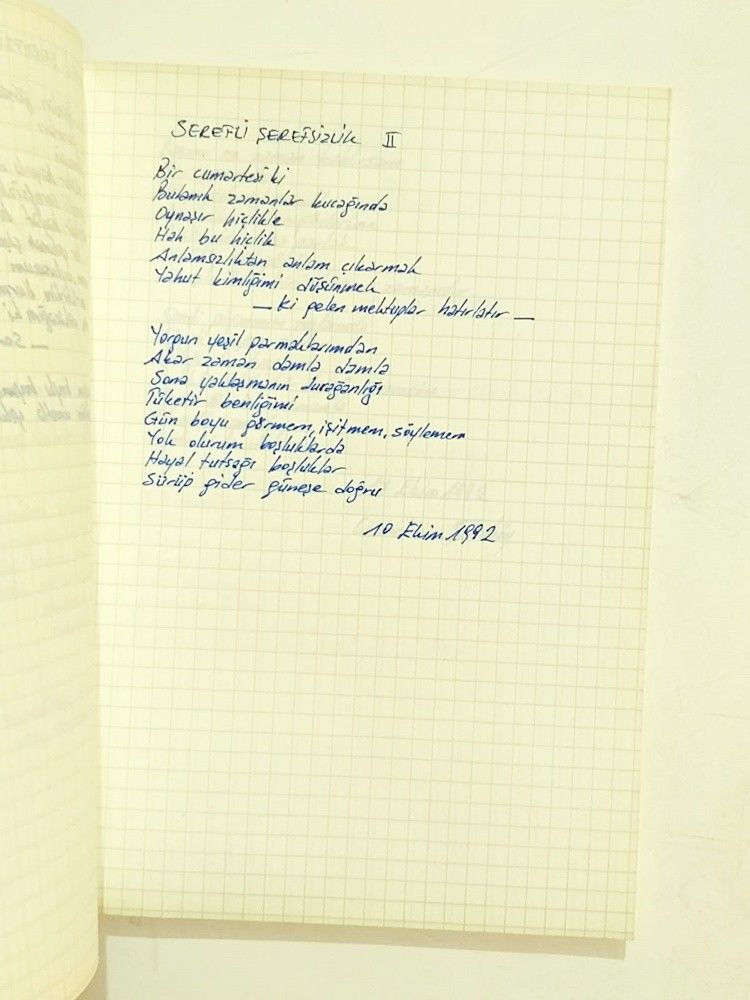 ŞEREFLİ ŞEREFSİZLİK II
Bir cumartesi ki
Bulanık zamanlar kucağında
Oynaşır hiçlikle
Hak bu hiçlik
Anlamsızlıktan anlam çıkarmak
Yahut kimliğimi düşünmek
— Ki gelen mektuplar hatırlatır —
Yorgun yeşil parmaklarımdan
Akar zaman damla damla
Sona yaklaşmanın durağanlığı
Tüketir benliğimi
Gün boyu görmem, işitmem, söylemem
Yok olurum boşluklarda
Hayal tutsağı boşluklar
Sürüp gider güneşe doğru
10 Ekim 1992